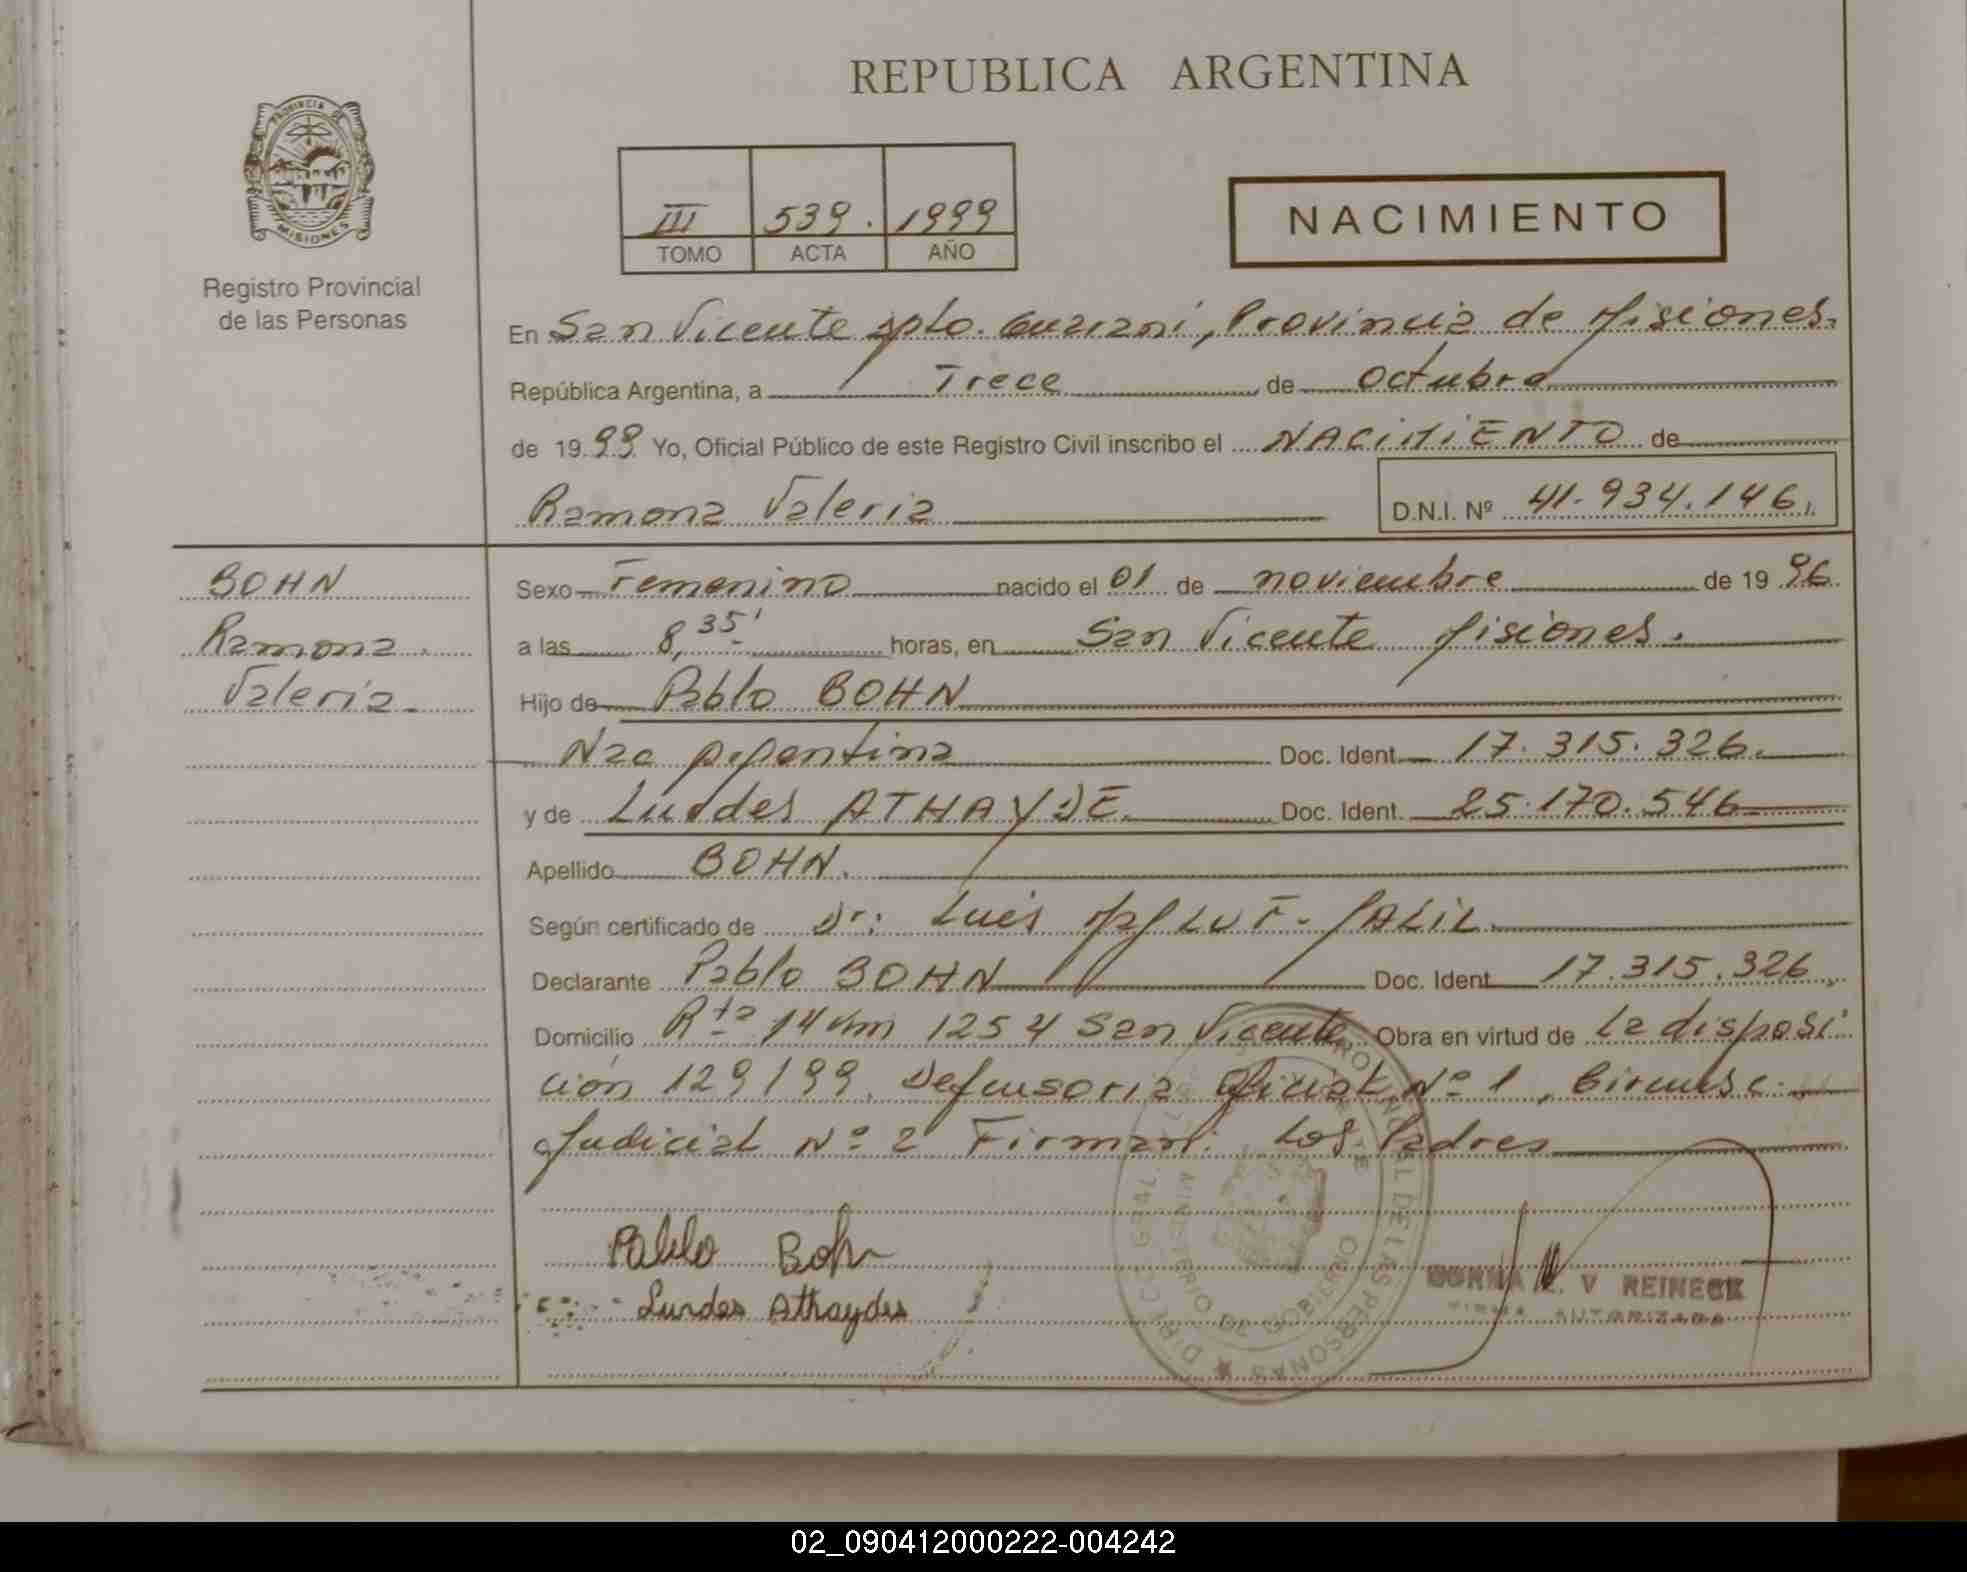 REPUBLICA ARGENTINA
PROVINCIA DE
MISIONES
Registro Provincial
de las Personas
III 539. 1999
TOMO ACTA AÑO
NACIMIENTO
En San Vicente Dpto. Guaraní, Provincia de Misiones.
República Argentina, a Trece de Octubre
de 1999 Yo, Oficial Público de este Registro Civil inscribo el NACIMIENTO de
Ramona Valeria D.N.I. Nº 41.934.146.
BOHN
Ramona.
Valeria.
Sexo Femenino nacido el 01 de noviembre de 1996.
a las 8,35' horas, en San Vicente Misiones.
Hijo de Pablo BOHN
Nac Argentina Doc. Ident. 17.315.326.
y de Lurdes ATHAYDE. Doc. Ident. 25.170.546
Apellido BOHN.
Según certificado de Dr: Luis
Declarante Pablo BOHN Doc. Ident. 17.315.326
Domicilio Rta 14 Km 1254 San Vicente Obra en virtud de la disposi
ción 129/99. Defensoria Oficial Nº 1, Circunsc.
Judicial Nº 2 Firman: Los Padres
Pablo Bohn
Lurdes Athaydes
V REINECK
FIRMA AUTORIZADA
MINISTERIO DE GOBIERNO
DE LAS PERSONAS
02_090412000222-004242